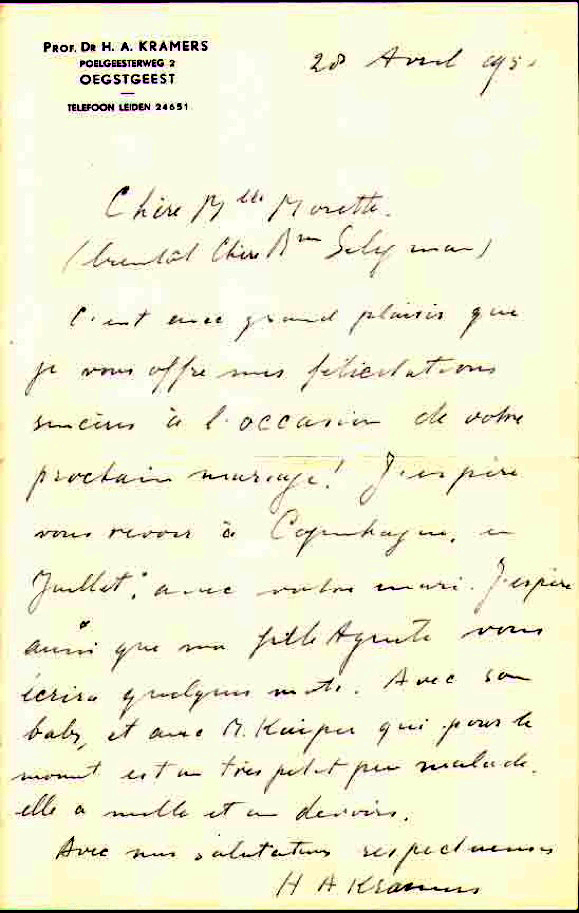 PROF. DR H. A. KRAMERS
POELGEESTERWEG 2
OEGSTGEEST
TELEFOON LEIDEN 24651
28 Avril 195
Chère Mlle Morette.
(bientôt Chère Mme Seligman)
C'est avec grand plaisir que
je vous offre mes félicitations
sincères à l'occasion de votre
prochain mariage! J'espère
vous revoir à Copenhague, en
Juillet, avec votre mari. J'espère
aussi que ma fille Agnete vous
écrira quelques mots. Avec son
baby, et avec M. Kuiper qui pour le
moment est un très petit peu malade.
elle a mille et un devoirs.
Avec mes salutations respectueuses
H A Kramers